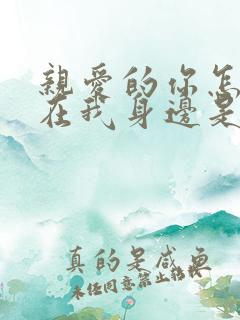 親愛的你怎
在我身邊是
真的是咸魚
未經同意禁止轉載